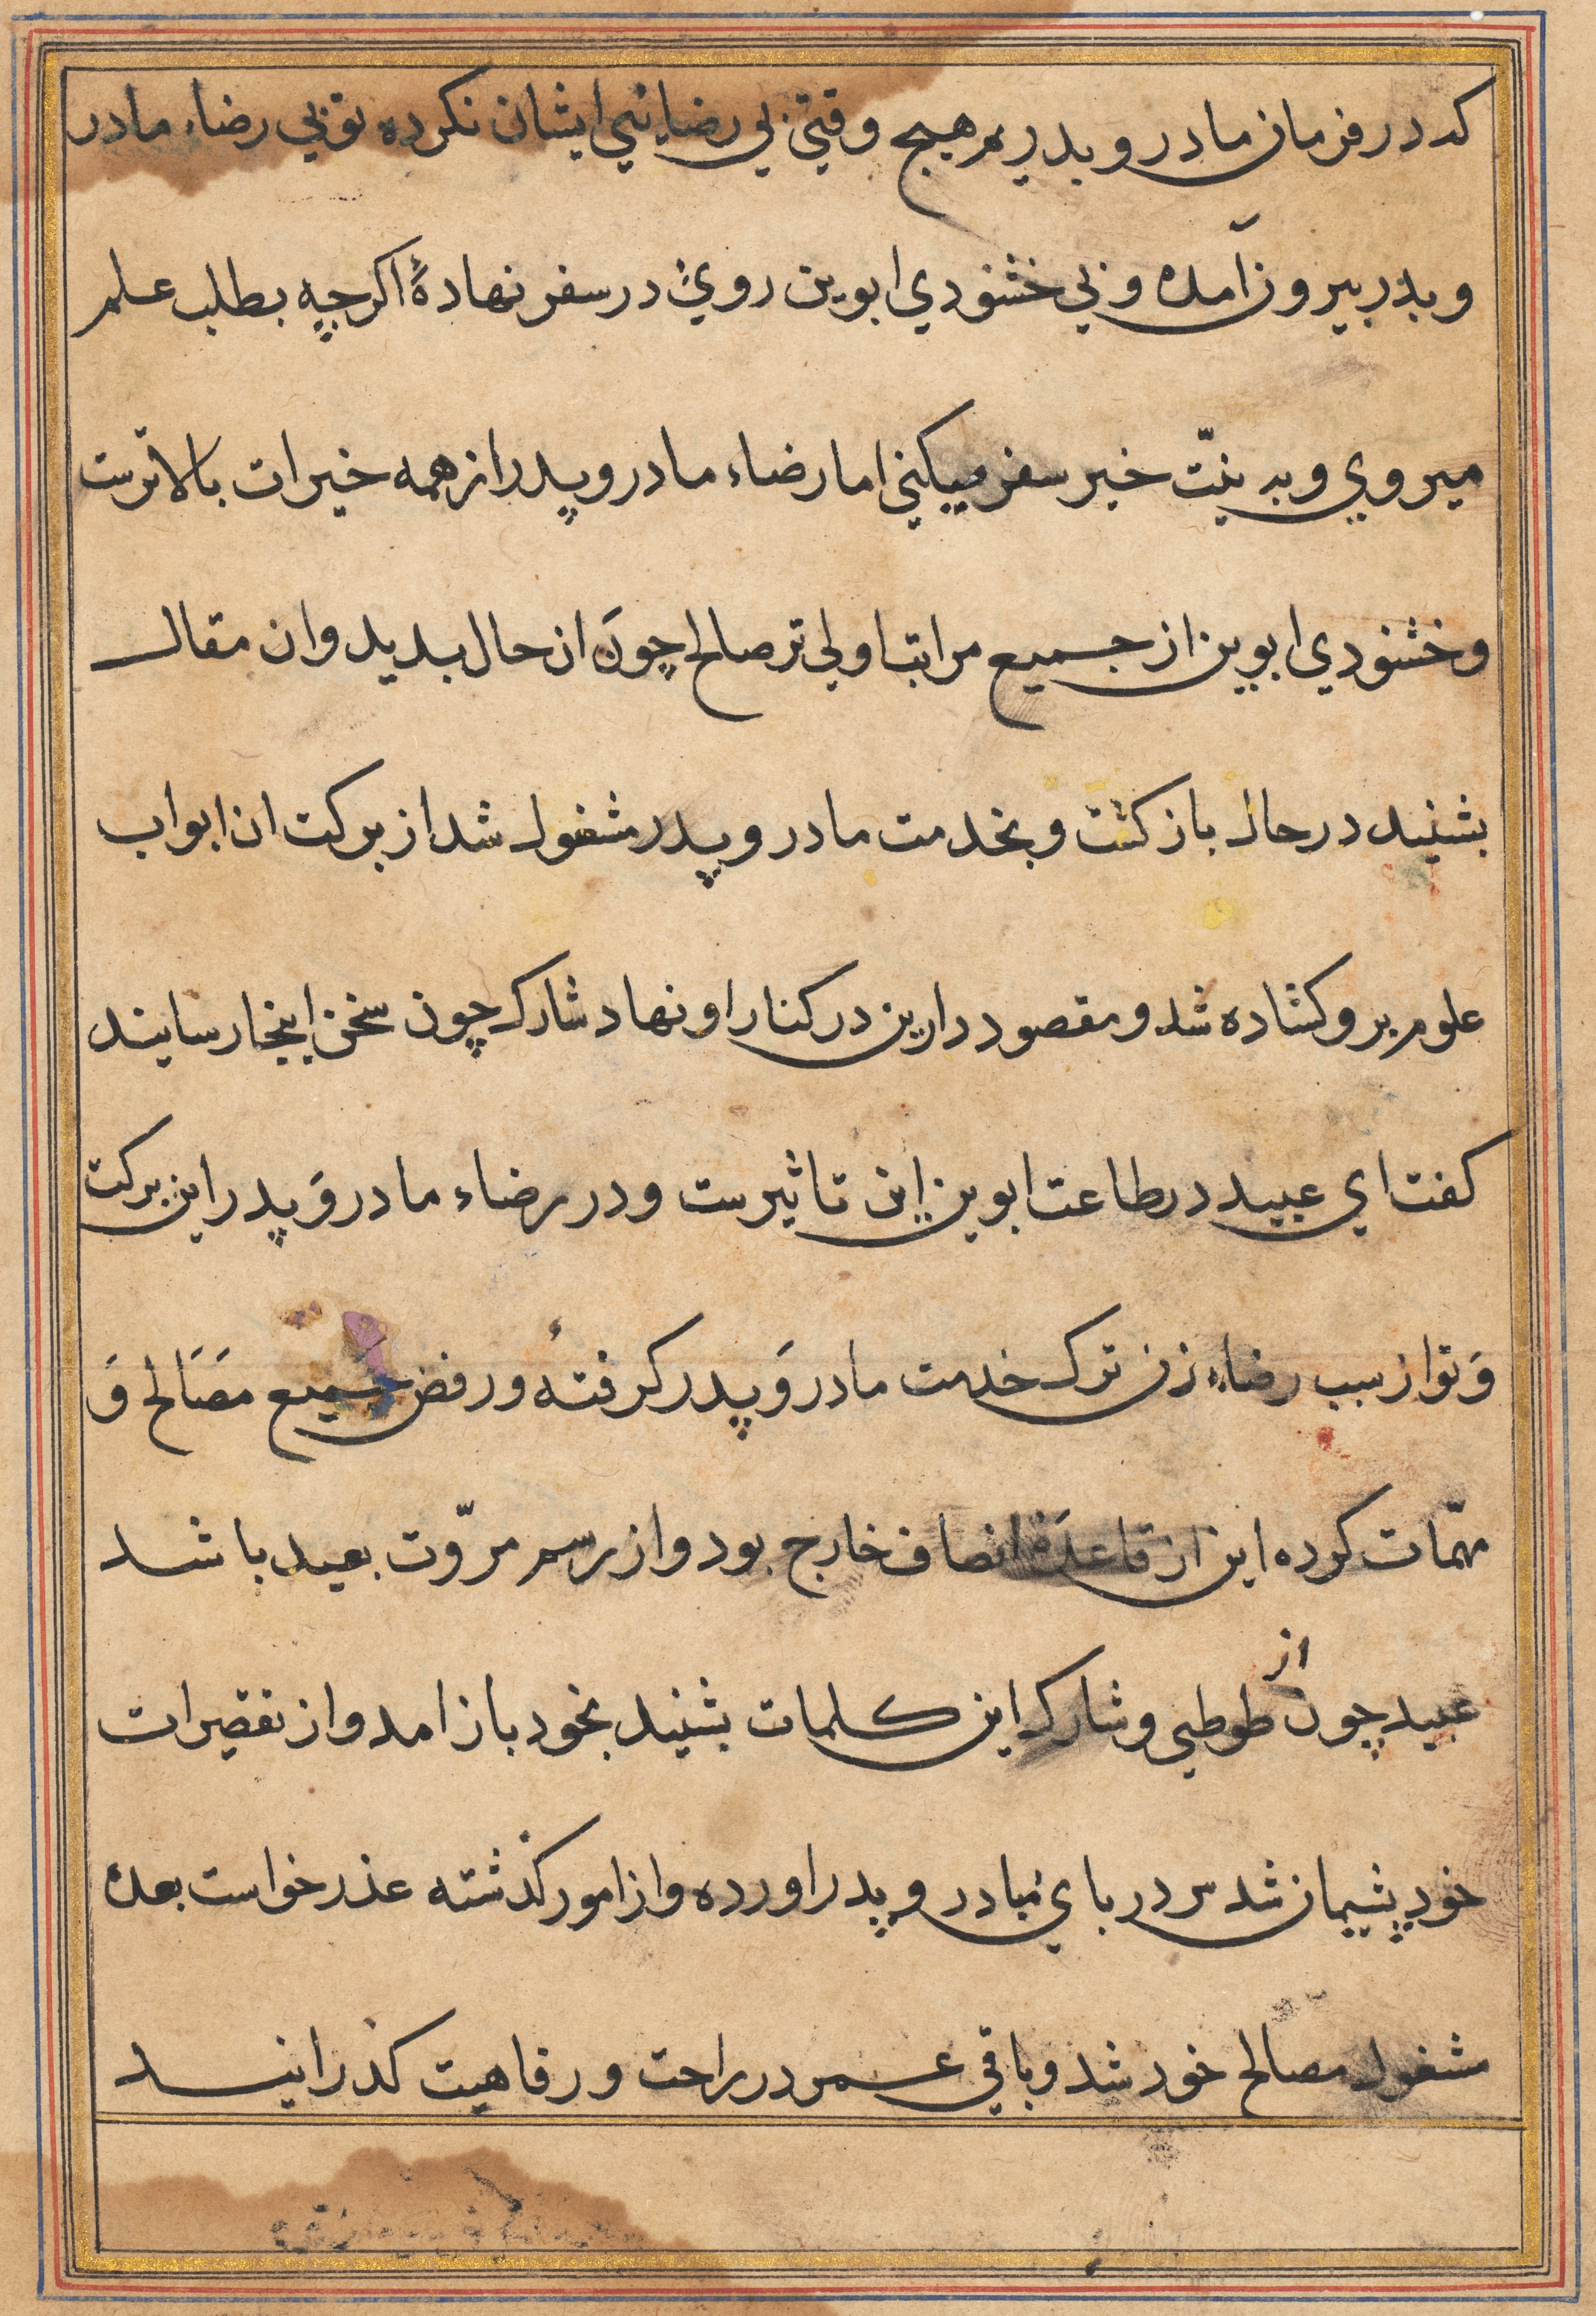 که در فرمان مادر و پدریم هیچ وقتی بی رضایئی ایشان نکرده توبی رضاء مادر
و بدر بیرون آمده و بی خشنودي ابوین روئ در سفر نهادهٔ اکرچه بطلب علم
میروي و به نیّت خیر سفر میکنی اما رضاء مادر و پدر از همه خیرات بالاترست
و خشنودي ابوین از جمیع مراتب اولی تر صالح چون ان حال بدید و ان مقال
بشنید در حال باز کشت و بخدمت مادر و پدر مشغول شد از برکت ان ابواب
علوم برو کشاده شد و مقصود دارین در کنار او نهاد شارک چون سخن اینجا رسانید
کفت اي عبید در طاعت ابوین این تاثیرست و در رضاء مادر وَ پدر این برکت
وَ تو از سبب رضاء زن ترک خدمت مادر وَ پدر کرفتهٔ و رفض جمیع مصَالح وَ
مهمّات کرده این از قاعدهٔ انصاف خارج بود و از رسم مروّت بعید باشد
عبید چون از طوطی و شارک این کلمات بشنید بخود باز امد و از تقصیرات
خود پشیمان شد سر در باي مادر و پدر اورده و از امور کذشته عذر خواست بعده
مشغول مصالح خود شد و باقی عمر در راحت و رفاهیت کذرانید